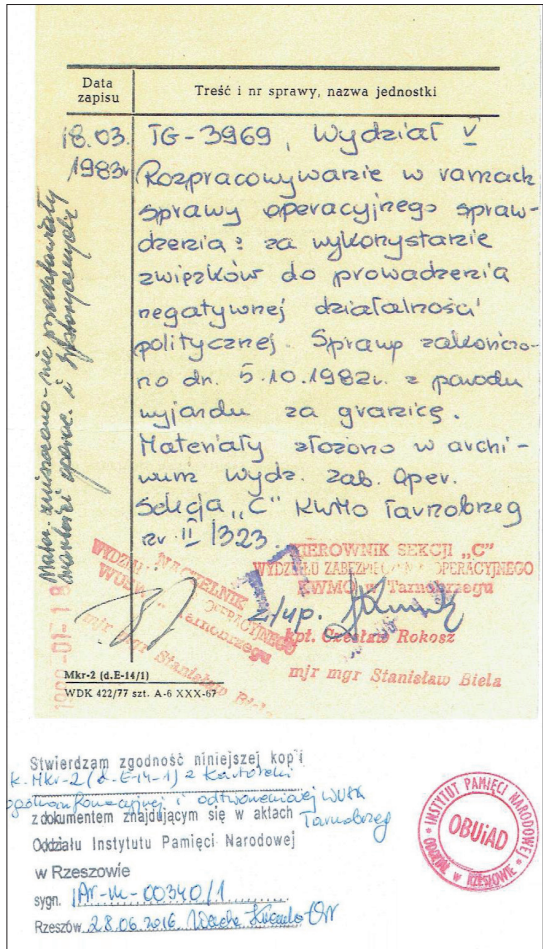 Data zapisu
Treść i nr sprawy, nazwa jednostki
18.03. 1983r
TG-3969, Wydział V
Rozpracowywanie w ramach
sprawy operacyjnego spraw-
dzenia: za wykorzystanie
związków do prowadzenia
negatywnej działalności
politycznej. Sprawę zakończo-
no dn. 5.10.1982r. z powodu
wyjazdu za granicę.
Materiały złożono w archi-
wum Wydz. Zab. Oper.
Sekcja "C" KWMO Tarnobrzeg
nr II/323.
Mater. zniszczono - nie przedstawiały
wartości operac. i
KIEROWNIK SEKCJI „C"
WYDZIAŁU ZABEZPIECZENIA OPERACYJNEGO
KWMO w Tarnobrzegu
z/up.
kpt. Czesław Rokosz
mjr mgr Stanisław Biela
NACZELNIK
WYDZIAŁU
OPERACYJNEGO
WUSW
Tarnobrzegu
mjr mgr Stanisław Biela
Mkr-2 (d.E-14/1)
WDK 422/77 szt. A-6 XXX-67
Stwierdzam zgodność niniejszej kopii
k. Mkr-2 (d. E-14-1) z Kartoteki
ogólnoinformacyjnej i odtworzeniowej WUSW
Tarnobrzeg
z dokumentem znajdującym się w aktach
Oddziału Instytutu Pamięci Narodowej
w Rzeszowie
sygn. IPN-Rz-00340/1
Rzeszów 28.06.2016
INSTYTUT PAMIĘCI NARODOWEJ
OBUiAD
ODDZIAŁ w RZESZOWIE